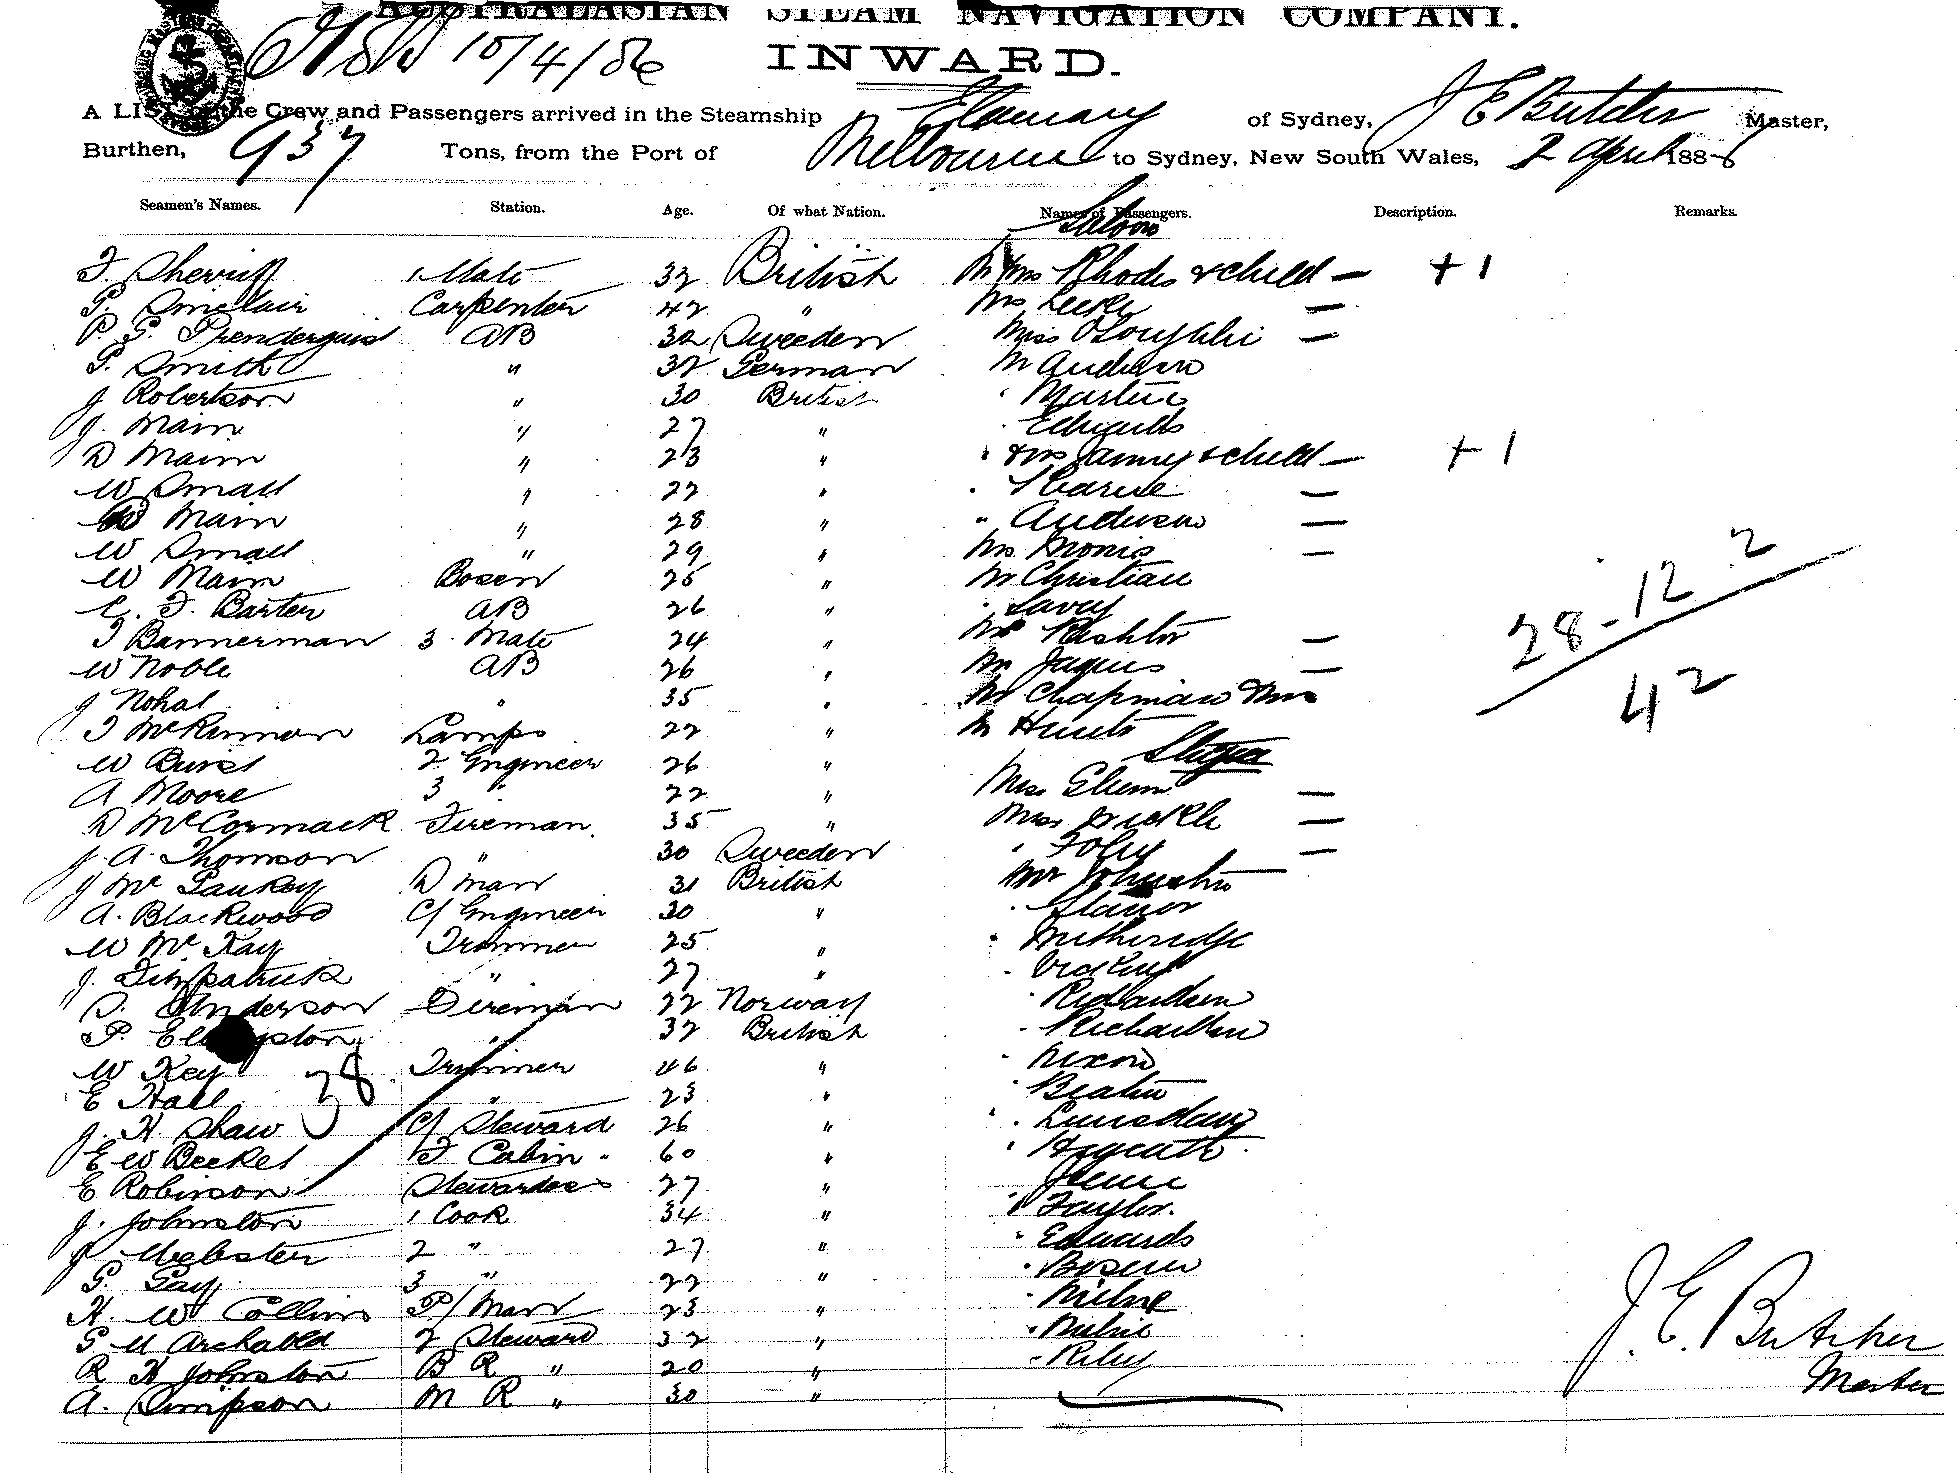 AUSTRALASIAN STEAM NAVIGATION COMPANY.
10/4/86 INWARD.
A LIST of the Crew and Passengers arrived in the Steamship Elamang of Sydney, J E Butcher Master,
Burthen, 937 Tons, from the Port of Melbourne to Sydney, New South Wales, 2 April 1886
Seamen's Names. Station. Age. Of what Nation. Names of Passengers. Description. Remarks.
Saloon
F. Sherriff 1 Mate 32 British Mr Mrs Rhodes & child — +1
P. Sinclair Carpenter 42 " Mrs —
P. G. Prenderguist AB 32 Sweeden Miss OLoughlin —
P. Smith " 32 German Mr Anderson
J Robertson " 30 British " Martin
J. Main " 27 " Edwards
D Maim " 23 " " & Mrs & child — +1
W Small " 22 " " —
W Main " 28 " " Anderson —
W Small " 29 " Mrs Morris —
W Maim Bosen 25 " Mr Christian
C. F. Barter AB 26 " "
T Bannerman 3 Mate 24 " Rishton —
W Noble AB 26 " Jaques —
J Nohal " 35 " Mr Chapman & Mrs
T McKinnon Lamps 22 " Mr Hunt
Steerage
W Burst 2 Engineer 26 "
A Moore 3 " 22 " Mrs —
D McCormack Fireman 35 " Mrs —
J. A. Thomson " 30 Sweeden " Foley —
J Mc D Man 31 British Mr Johnston
A. Blackwood C/ Engineer 30 " "
W McKay Trimmer 25 " " Witheridge
J. Fitzpatrick " 27 " "
Anderson Fireman 22 Norway " Richardson
P. " 32 British " Richardson
W Key Trimmer 46 " " Nixon
E Hall 38 " 23 " "
J. H Shaw C/ Steward 26 " " Lumsdaing
E W Beckel F Cabin " 60 " "
E Robinson Stewardess 27 "
J. Johnston 1 Cook 34 " " Taylor.
J Webster 2 " 27 " " Edwards
G. Gay 3 " 22 " "
H. W Collins P/ Man 23 " " Milne
G M Archabld 2 Steward 32 " "
R H Johnston B R " 20 " " Riley
A. Simpson M R " 30 "
28-12 2
42
J. E. Butcher
Master